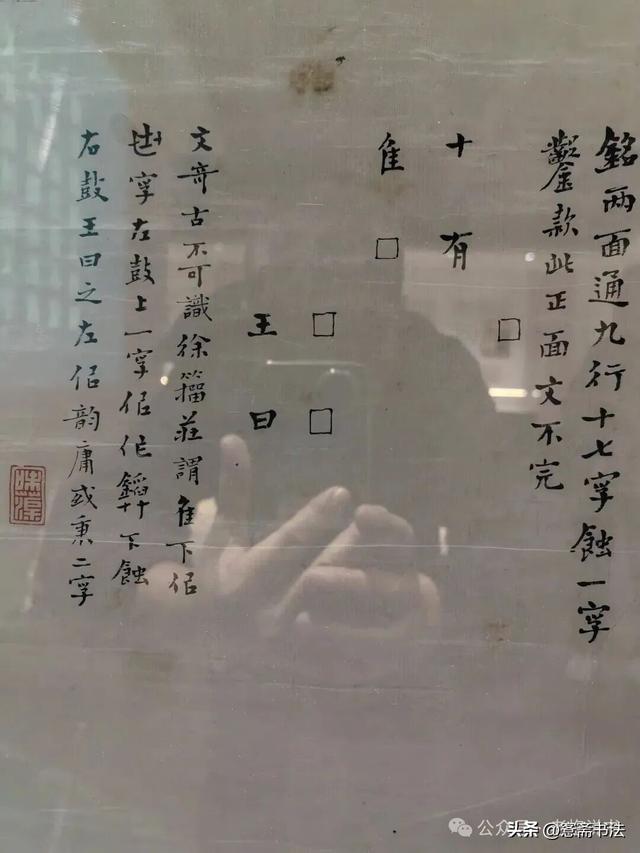 銘兩面通九行十七字蝕一字
鑿款此正面文不完
□
十有
隹□
□□
王曰
文奇古不可識徐籀莊謂隹下佀
字左鼓上一字佀作下蝕
右鼓王曰之左佀韵庸或秉二字
公众号
头条 @斋书法